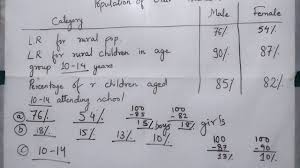 Population of
Category Male Female
LR for rural pop. 76% 54%
LR for rural children in age group 10-14 years 90% 87%
Percentage of r children aged 10-14 attending school 85% 82%
(a) 76% 54% 100 -85 15% boys 100 -82 18% girls
(b) 18% 15% 13% 10% 100 -87 13% 100 -90 10%
(c) 10-14